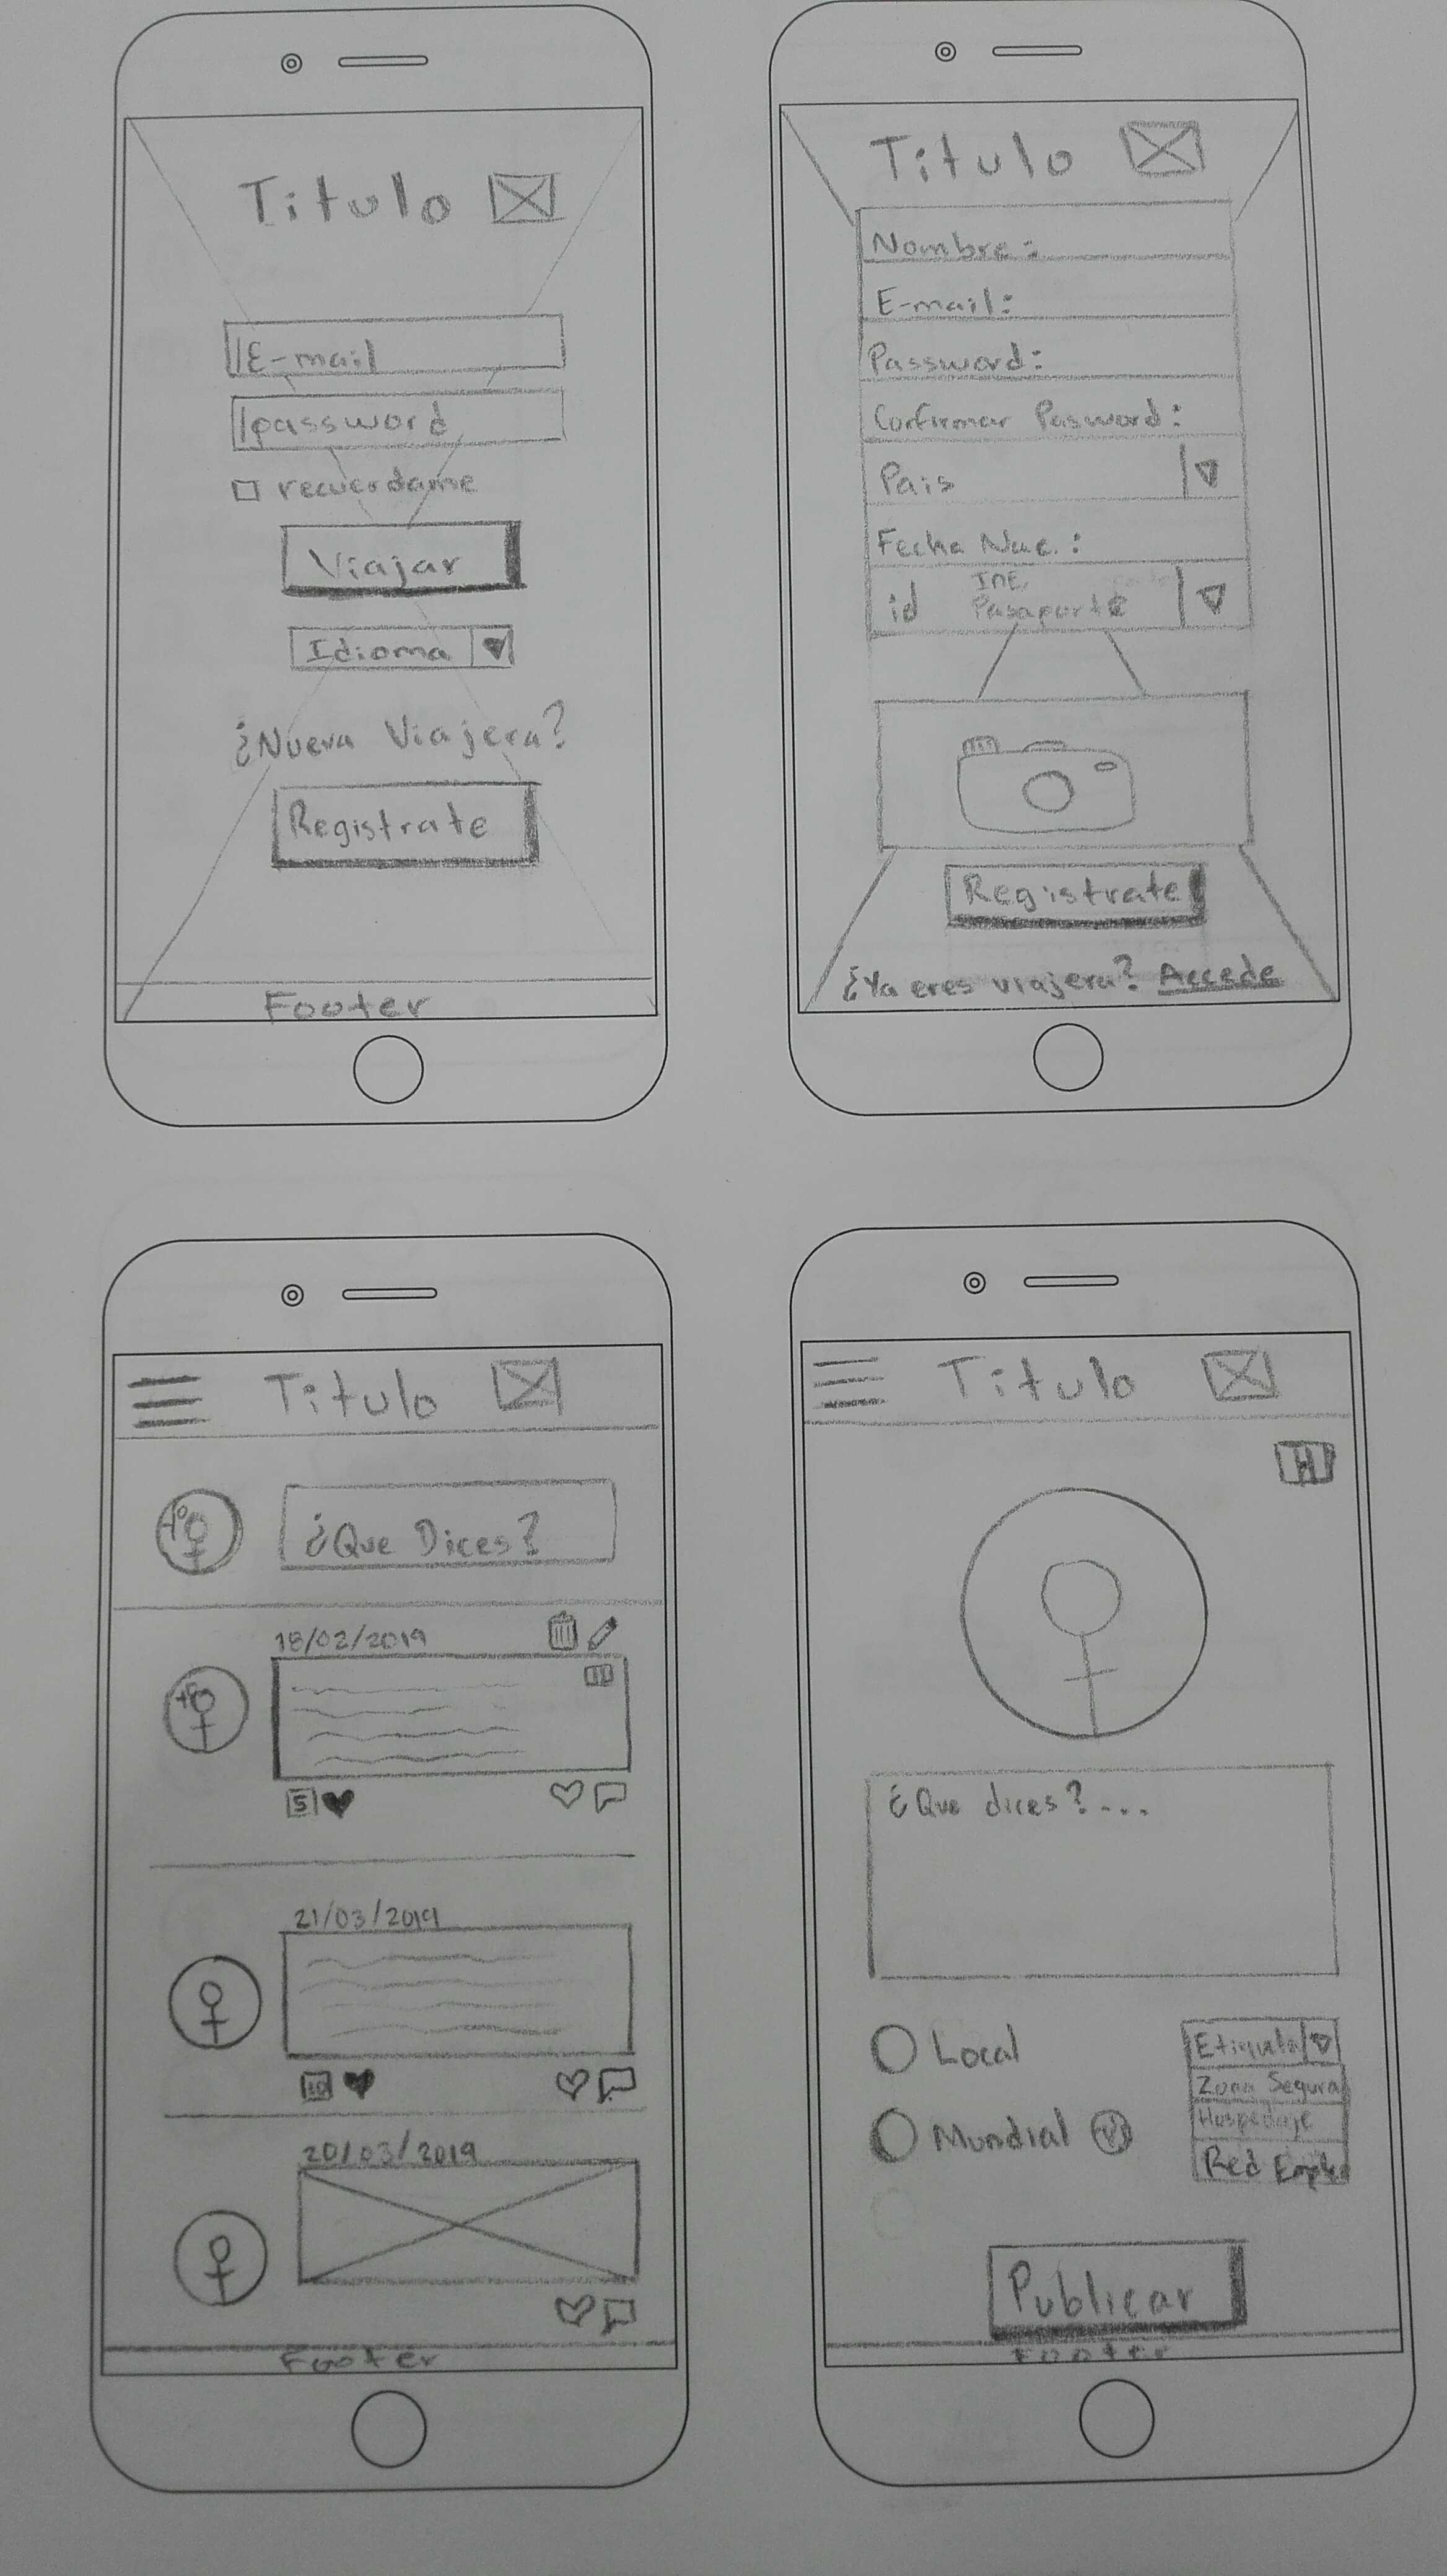 Titulo
E-mail
password
recuerdame
Viajar
Idioma
¿Nueva Viajera?
Registrate
Footer
Titulo
Nombre:
E-mail:
Password:
Confirmar Pasword:
Pais
Fecha Nac.:
INE,
id Pasaporte
Registrate
¿Ya eres viajera? Accede
Titulo
¿Que Dices?
18/02/2019
5
21/03/2019
10
20/03/2019
Footer
Titulo
H
¿Que dices?...
Local
Etiqueta
Zona Segura
Hospedaje
Mundial
Red
Publicar
Footer